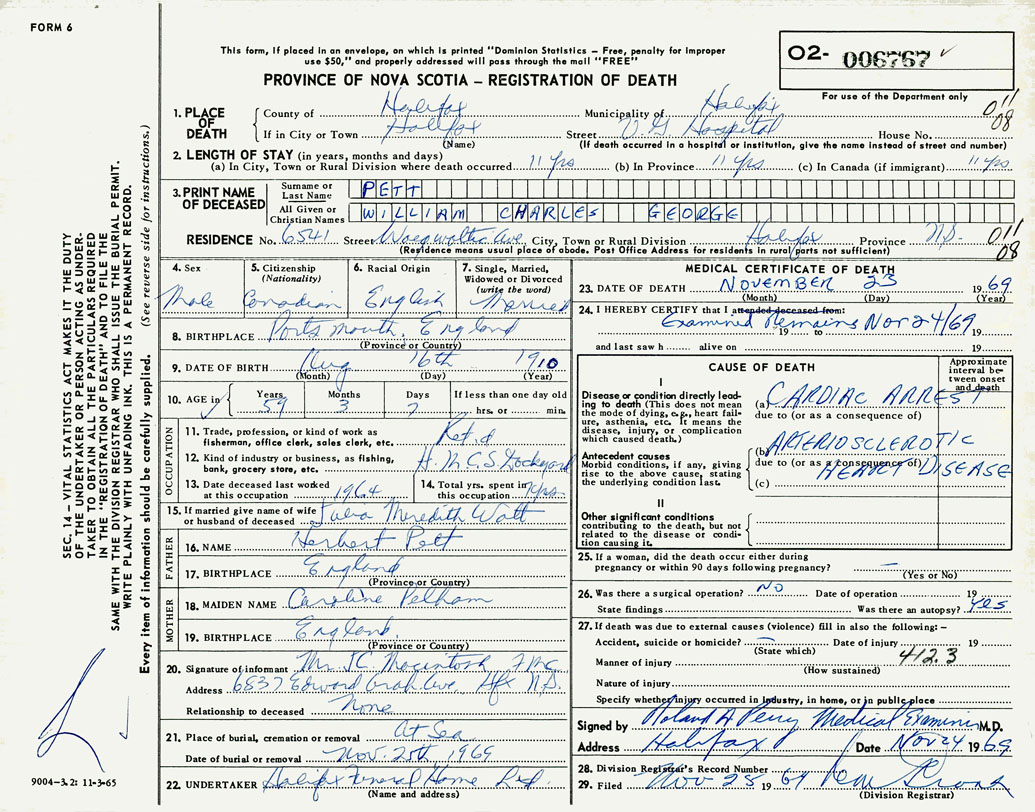 FORM 6
This form, if placed in an envelope, on which is printed "Dominion Statistics – Free, penalty for improper
use $50," and properly addressed will pass through the mail "FREE"
PROVINCE OF NOVA SCOTIA – REGISTRATION OF DEATH
02- 006767
For use of the Department only
011
08
1. PLACE OF DEATH
County of Halifax Municipality of Halifax
If in City or Town Halifax Street V G Hospital House No.
(Name) (If death occurred in a hospital or institution, give the name instead of street and number)
2. LENGTH OF STAY (in years, months and days)
(a) In City, Town or Rural Division where death occurred 11 yrs (b) In Province 11 yrs (c) In Canada (if immigrant) 11 yrs
3. PRINT NAME OF DECEASED
Surname or Last Name PETT
All Given or Christian Names WILLIAM CHARLES GEORGE
RESIDENCE No. 6541 Street Waegwoltic Ave. City, Town or Rural Division Halifax Province N.S. 011
(Residence means usual place of abode. Post Office Address for residents in rural parts not sufficient) 08
4. Sex
Male
5. Citizenship (Nationality)
Canadian
6. Racial Origin
English
7. Single, Married, Widowed or Divorced (write the word)
Married
8. BIRTHPLACE Portsmouth, England
(Province or Country)
9. DATE OF BIRTH Aug 16th 1910
(Month) (Day) (Year)
10. AGE in Years 59 Months 3 Days 7 If less than one day old
hrs. or min.
OCCUPATION
11. Trade, profession, or kind of work as
fisherman, office clerk, sales clerk, etc. Ret.d
12. Kind of industry or business, as fishing,
bank, grocery store, etc. H.M.C.S Dockyard
13. Date deceased last worked
at this occupation 1964
14. Total yrs. spent in
this occupation yrs
15. If married give name of wife
or husband of deceased Julia Meredith Watt
FATHER
16. NAME Herbert Pett
17. BIRTHPLACE England
(Province or Country)
MOTHER
18. MAIDEN NAME Caroline Pelham
19. BIRTHPLACE England.
(Province or Country)
20. Signature of informant Mr JC Macintosh
Address 6837 Edward Arab Ave. Hfx N.S.
Relationship to deceased None
21. Place of burial, cremation or removal At Sea
Date of burial or removal Nov. 25th 1969
22. UNDERTAKER Halifax Funeral Home Ltd.
(Name and address)
MEDICAL CERTIFICATE OF DEATH
23. DATE OF DEATH NOVEMBER 23 1969
(Month) (Day) (Year)
24. I HEREBY CERTIFY that I attended deceased from:
Examined Remains Nov 24/69
19 to 19
and last saw h alive on 19
CAUSE OF DEATH
Approximate interval between onset and death
I
Disease or condition directly leading to death (This does not mean
the mode of dying, e.g., heart failure, asthenia, etc. It means the
disease, injury, or complication
which caused death.)
(a) CARDIAC ARREST
due to (or as a consequence of)
Antecedent causes
Morbid conditions, if any, giving
rise to the above cause, stating
the underlying condition last.
(b) ARTERIOSCLEROTIC
due to (or as a consequence of)
HEART DISEASE
(c)
II
Other significant conditions
contributing to the death, but not
related to the disease or condition causing it.
25. If a woman, did the death occur either during
pregnancy or within 90 days following pregnancy? —
(Yes or No)
26. Was there a surgical operation? NO Date of operation 19
State findings Was there an autopsy? Yes
27. If death was due to external causes (violence) fill in also the following: –
Accident, suicide or homicide? — Date of injury 19
(State which) 412.3
Manner of injury
(How sustained)
Nature of injury
Specify whether injury occurred in industry, in home, or in public place
Signed by Roland A Perry Medical Examiner M.D.
Address Halifax Date Nov 24 1969
28. Division Registrar's Record Number
29. Filed Nov 25 1969
(Division Registrar)
SEC. 14 – VITAL STATISTICS ACT MAKES IT THE DUTY
OF THE UNDERTAKER OR PERSON ACTING AS UNDER-
TAKER TO OBTAIN ALL THE PARTICULARS REQUIRED
IN THE "REGISTRATION OF DEATH" AND TO FILE THE
SAME WITH THE DIVISION REGISTRAR WHO SHALL ISSUE THE BURIAL PERMIT.
WRITE PLAINLY WITH UNFADING INK. THIS IS A PERMANENT RECORD.
Every item of information should be carefully supplied. (See reverse side for instructions.)
9004-3.2: 11-3-65